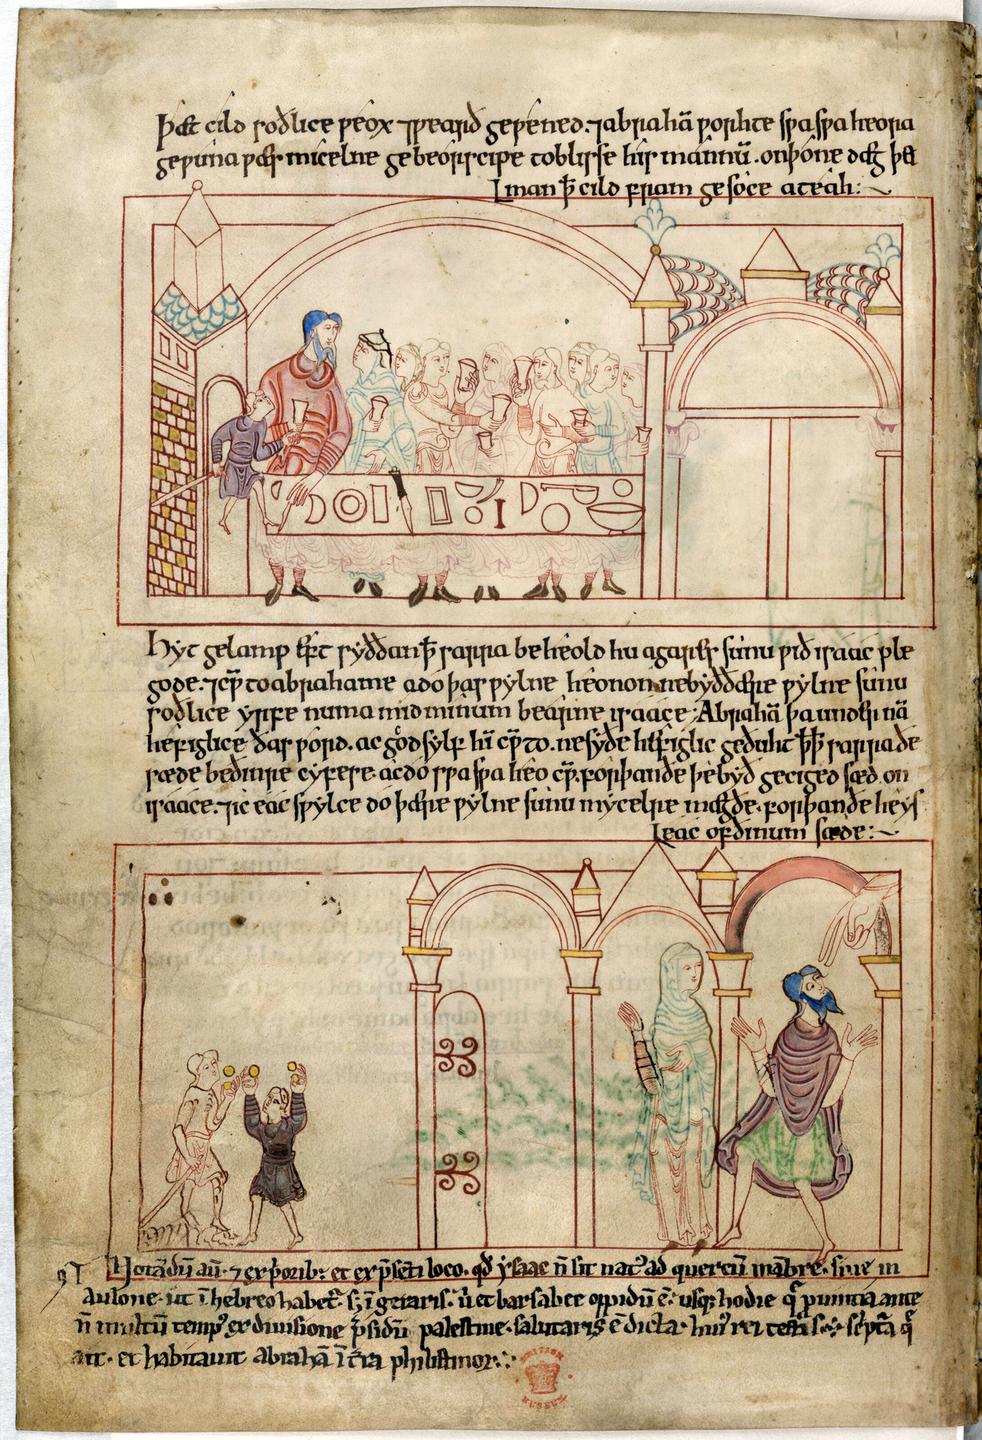 Þæt cild soðlice weox ⁊ wearð gewened. ⁊ abrahā worhte swa swa heora
gewuna wæs micelne gebeorscipe to blisse his mannū. on þone dæg þe
man þ̄ cild fram gesoce ateah:~
Hyt gelamp eft syððan þ̄ sarra beheold hu agares sunu wið isaac ple
gode. ⁊ cw̄ to abrahame ado þas wylne heonon ne byð ðære wylne sunu
soðlice yrfe numa mid minum bearne isaace; Abrahā þa under nā
hefiglice ðas word. ac god sylf hī cw̄ to. ne sy ðe hefiglic geðuht þ̄ þ̄ sarra ðe
sæde be ðinre cyfese. ac do swa swa heo cw̄. forþan ðe þe byð geciged sæd on
isaace. ⁊ ic eac swylce do þære wylne sunu mycelre mægðe. forþan ðe he ys
eac of ðinum sæde:~
Notādū aū. ⁊ ex p̄orib: et ex p̄sēti loco. qđ ysaac n̄ sit nat' ad quercū mābre. siue in
Aulone. ut ī hebreo habet̄. sʒ ī geraris. ū et barsabee oppidū ē. usq; hodie q̄ puintia ante
n̄ multū temp' ex diuisione p̄sidū palestine. salutaris ē dicta. hui' rei testis scptā q̄
ait. et habitauit abrahā ī t̄ra philistinor.
BRITISH MUSEUM